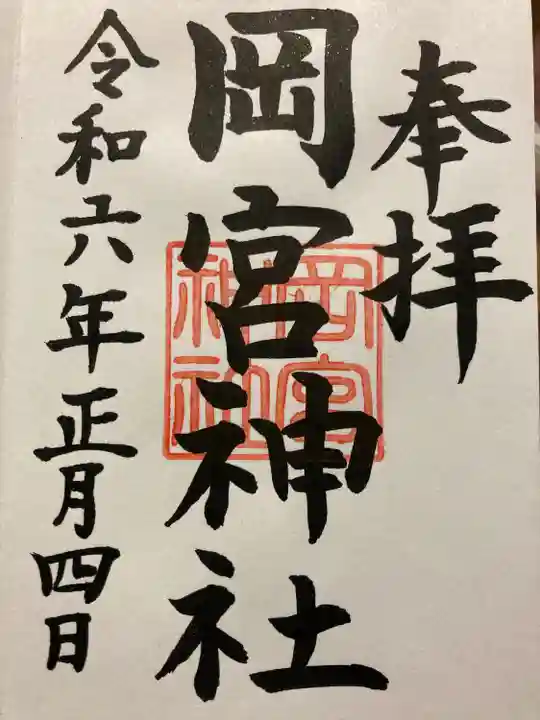 奉拝
岡宮神社
岡宮
神社
令和六年正月四日